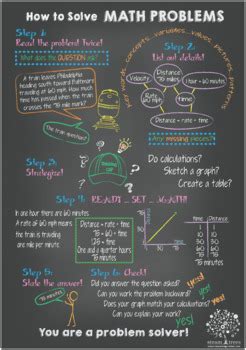 How to Solve MATH PROBLEMS
Step 1:
Read the problem! Twice!
What does the QUESTION ask?
A train leaves Philadelphia
heading south toward Baltimore
traveling at 60 mph. How much
time has passed when the train
crosses the 75 mile mark?
The train question!
Step 2:
List out details!
key words, concepts, variables, values, pictures, patterns
Velocity
Distance
75 miles
1 hour = 60 minutes
Distance = rate • time
Any missing pieces?
Step 3:
Strategize!
Do calculations?
Sketch a graph?
Create a table?
Step 4: READY ... SET ... MATH!
In one hour there are 60 minutes
At 60 MPH means the train is
traveling one mile per minute
Distance = rate • time
75 = 60 • time
75/60 = time
One and a quarter hours
75 minutes
time
distance
Time
Distance
Step 5:
State the answer!
75 minutes
Step 6: Check!
Does your answer make sense?
Can you work the problem backward?
Does your graph match your calculations?
Can you explain your work?
yes!
yes!
yes!
You are a problem solver!